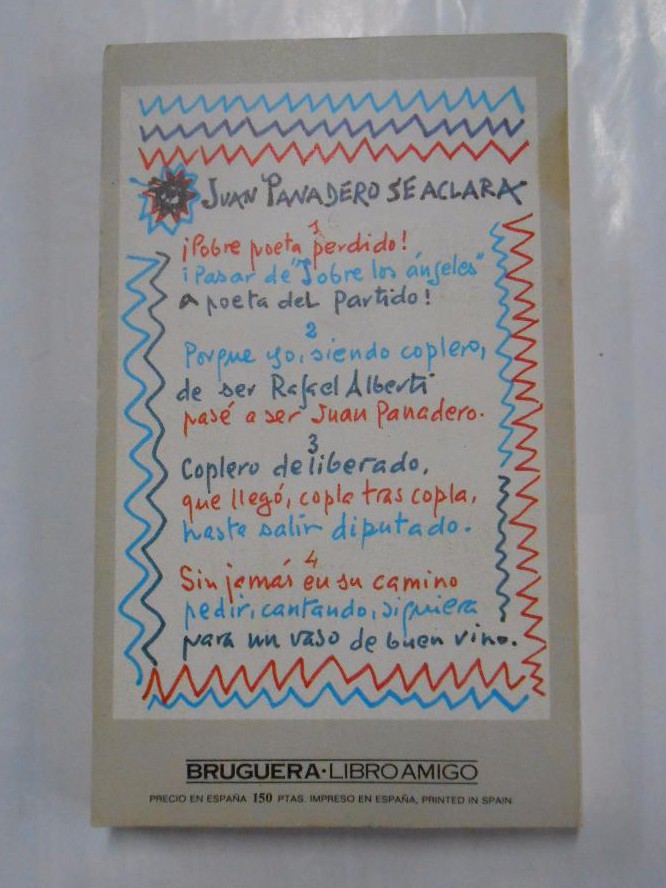 JUAN PANADERO SE ACLARA
1
¡Pobre poeta perdido!
¡Pasar de "Sobre los ángeles"
a poeta del Partido!
2
Porque yo, siendo coplero,
de ser Rafael Alberti
pasé a ser Juan Panadero.
3
Coplero deliberado,
que llegó, copla tras copla,
hasta salir diputado.
4
Sin jamás en su camino
pedir, cantando, siquiera
para un vaso de buen vino.
BRUGUERA·LIBRO AMIGO
PRECIO EN ESPAÑA 150 PTAS. IMPRESO EN ESPAÑA, PRINTED IN SPAIN